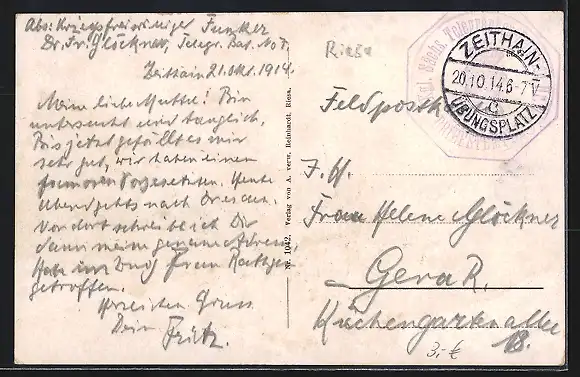 Abs: Kriegsfreiwilliger Funker
Dr. Fr. Glöckner, Telegr. Bat. No 7.
Zeithain 21. Okt. 1914.
Meine liebe Mutter! Bin
untersucht und tauglich.
Bis jetzt gefällt es mir
sehr gut, wir haben einen
famosen Vorgesetzten. Heute
Abend gehts nach Dresden.
Von dort schreibe ich Dir
dann meine genaue Adresse.
Habe im Frau Rathgen
getroffen.
Herzlichsten Gruss
Dein Fritz.
Nr. 1042. Verlag von A. verw. Reinhardt, Riesa.
Riesa
ZEITHAIN-
20.10.14.6-7V
c
ÜBUNGSPLATZ
Feldpostk
I. H.
Frau Helene Glöckner
Gera R.
Küchengartenallee
18.
3,- €